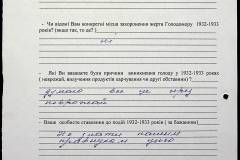 - Чи відомі Вам конкретні місця захоронення жертв Голодомору 1932-1933
років? (якщо так, то де?)
ні
- Які Ви вважаєте були причини виникнення голоду у 1932-1933 роках
(неврожай, вилучення продуктів харчування чи другі обставини)?
думаю що це
неврожай
- Ваше особисте ставлення до подій 1932-1933 років (за бажанням)
Не знати нашим
правнукам цього